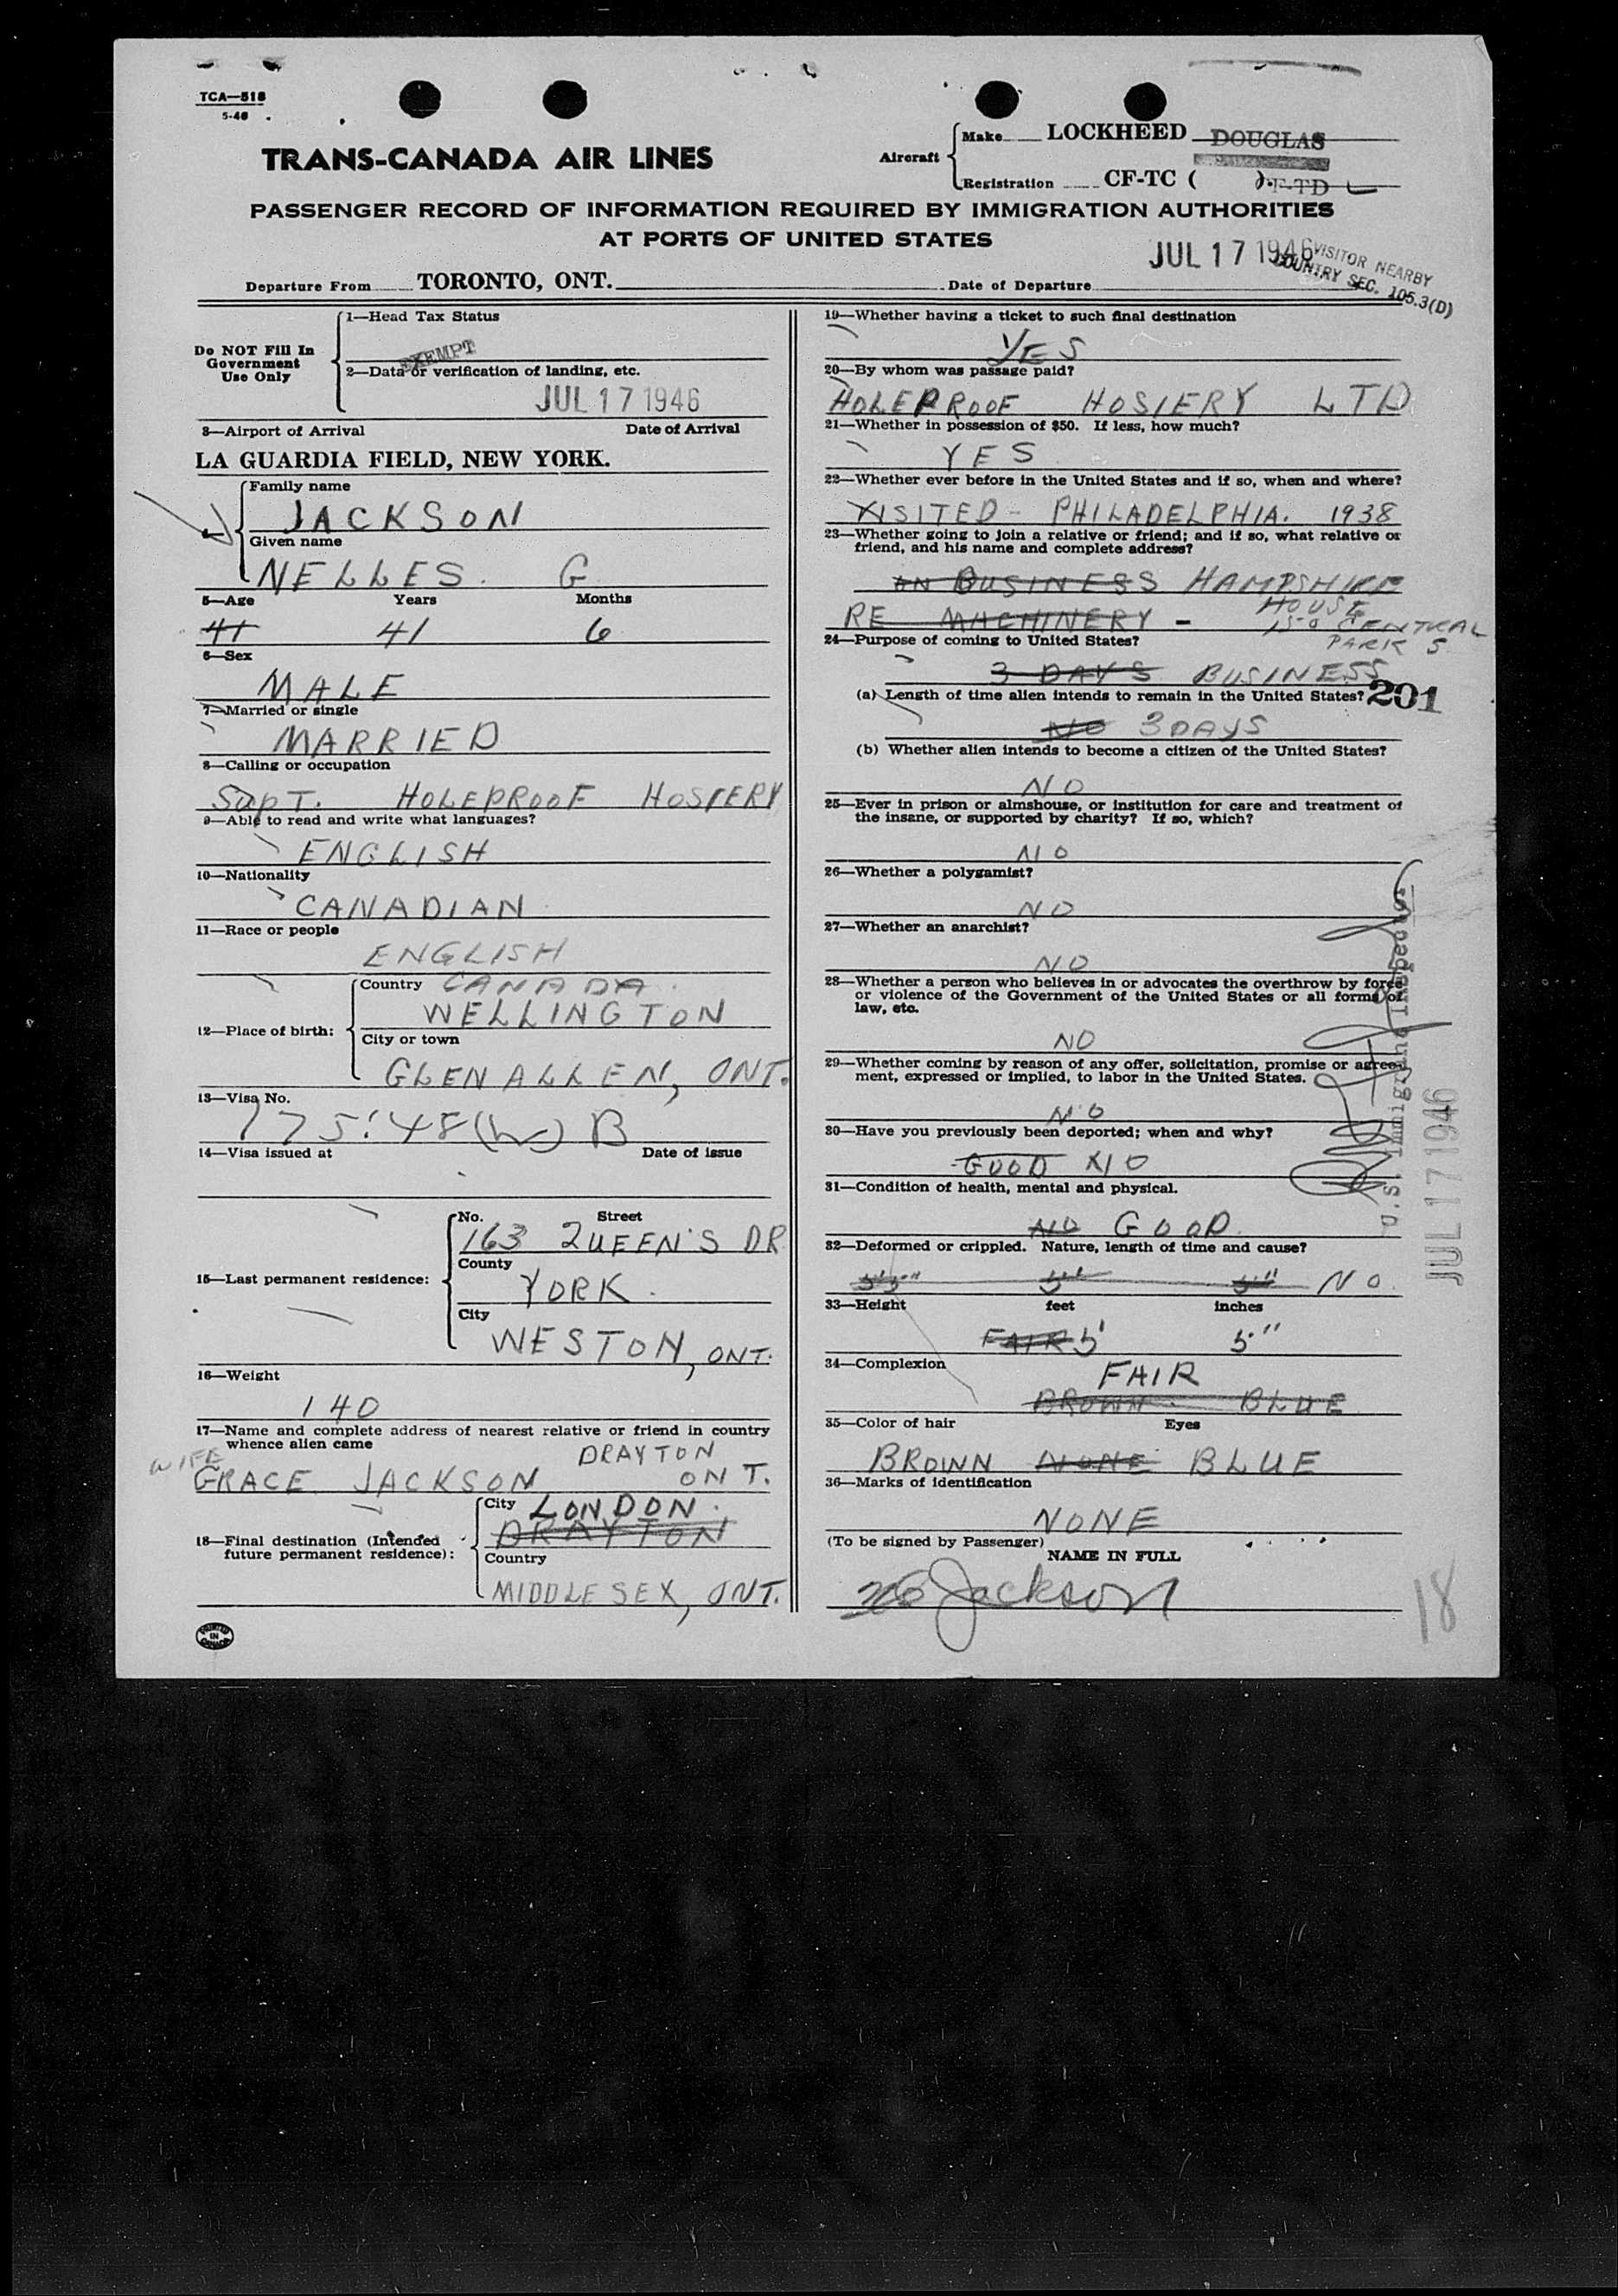 TCA—518
5-46
TRANS-CANADA AIR LINES
Aircraft
Make LOCKHEED DOUGLAS
Registration CF-TC ( ). F-TD
PASSENGER RECORD OF INFORMATION REQUIRED BY IMMIGRATION AUTHORITIES
AT PORTS OF UNITED STATES
JUL 17 1946
VISITOR NEARBY
COUNTRY SEC. 105.3(D)
Departure From TORONTO, ONT. Date of Departure
Do NOT Fill In
Government
Use Only
1—Head Tax Status
EXEMPT
2—Data or verification of landing, etc.
JUL 17 1946
3—Airport of Arrival Date of Arrival
LA GUARDIA FIELD, NEW YORK.
Family name
JACKSON
Given name
NELLES. G
5—Age Years Months
41 41 6
6—Sex
MALE
7—Married or single
MARRIED
8—Calling or occupation
SupT. HOLEPROOF HOSIERY
9—Able to read and write what languages?
ENGLISH
10—Nationality
CANADIAN
11—Race or people
ENGLISH
12—Place of birth:
Country CANADA
WELLINGTON
City or town
GLENALLEN, ONT.
13—Visa No.
175.48(W) B
14—Visa issued at Date of issue
15—Last permanent residence:
No. Street
163 QUEEN'S DR
County
YORK.
City
WESTON, ONT.
16—Weight
140
17—Name and complete address of nearest relative or friend in country
whence alien came
DRAYTON
WIFE
GRACE JACKSON ONT.
18—Final destination (Intended
future permanent residence):
City LONDON.
DRAYTON
Country
MIDDLESEX, ONT.
PRINTED
IN
CANADA
19—Whether having a ticket to such final destination
YES
20—By whom was passage paid?
HOLEPROOF HOSIERY LTD
21—Whether in possession of $50. If less, how much?
YES
22—Whether ever before in the United States and if so, when and where?
VISITED - PHILADELPHIA. 1938
23—Whether going to join a relative or friend; and if so, what relative or
friend, and his name and complete address?
ON BUSINESS HAMPSHIRE
HOUSE
RE MACHINERY - 150 CENTRAL
PARK S
24—Purpose of coming to United States?
3 DAYS BUSINESS
(a) Length of time alien intends to remain in the United States? 201
NO 3 DAYS
(b) Whether alien intends to become a citizen of the United States?
NO
25—Ever in prison or almshouse, or institution for care and treatment of
the insane, or supported by charity? If so, which?
NO
26—Whether a polygamist?
NO
27—Whether an anarchist?
NO
28—Whether a person who believes in or advocates the overthrow by force
or violence of the Government of the United States or all forms of
law, etc.
NO
29—Whether coming by reason of any offer, solicitation, promise or agree-
ment, expressed or implied, to labor in the United States.
NO
30—Have you previously been deported; when and why?
GOOD NO
31—Condition of health, mental and physical.
NO GOOD
32—Deformed or crippled. Nature, length of time and cause?
5'5" 5' 5" NO
33—Height feet inches
FAIR 5' 5"
34—Complexion
FAIR
BROWN BLUE
35—Color of hair Eyes
BROWN NONE BLUE
36—Marks of identification
NONE
(To be signed by Passenger)
NAME IN FULL
NG Jackson
U.S. Immigrant Inspector
JUL 17 1946
18